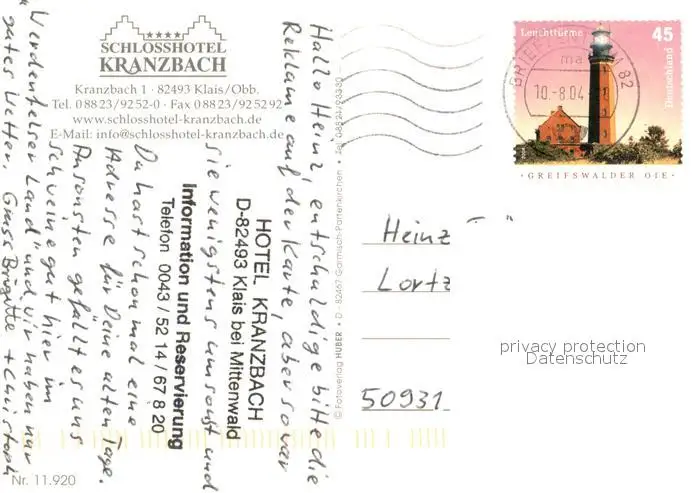 SCHLOSSHOTEL
KRANZBACH
Kranzbach 1 · 82493 Klais/Obb.
Tel. 0 88 23/92 52-0 · Fax 0 88 23/9 25 2 92
www.schlosshotel-kranzbach.de
E-Mail: info@schlosshotel-kranzbach.de
Hallo Heinz, entschuldige bitte die
Reklame auf der Karte, aber so war
sie wenigstens umsonst und
Du hast schon mal eine
Adresse für Deine alten Tage.
Ansonsten gefällt es uns
scheinegut hier im
"Werdenfelser Land" und wir haben nur
gutes Wetter, Gruss Brigitte + Christoph
HOTEL KRANZBACH
D-82493 Klais bei Mittenwald
Information und Reservierung
Telefon 0043 / 52 14 / 67 8 20
© Fotoverlag HUBER · D - 82467 Garmisch-Partenkirchen · Tel. 08821/93330
Nr. 11.920
Leuchttürme
45
Deutschland
GREIFSWALDER OIE
82
ma
10.-8.04
Heinz
Lortz
50931
privacy protection
Datenschutz